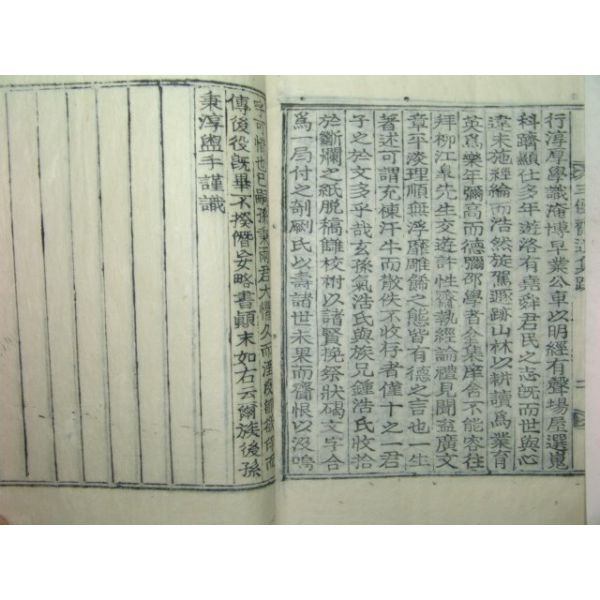 行淳厚學識淹博早業公車以明經有聲場屋選嵬
科躋顯仕多年遊洛有堯舜君民之志旣而世與心
違未施經綸而浩然旋駕遯跡山林以耕讀爲業育
英爲樂年彌高而德彌卲學者全集庠舍不能容往
拜柳江皐先生交遊許性齋執經論禮見聞益廣文
章平淡理順無浮靡雕飾之態皆有德之言也一生
著述可謂充棟汗牛而散佚不收存者僅十之一君
子之於文多乎哉玄孫氣浩氏與族兄鍾浩氏收拾
於斷爛之紙脫稿讎校附以諸賢挽祭狀碣文字合
爲一局付之剞劂氏以壽諸世未果而齎恨以沒嗚
呼可惜也已嗣孫秉雨君大懼久而湮
傳後役旣畢不揆僭妄略書顚末如右云爾族後孫
秉淳盥手謹識